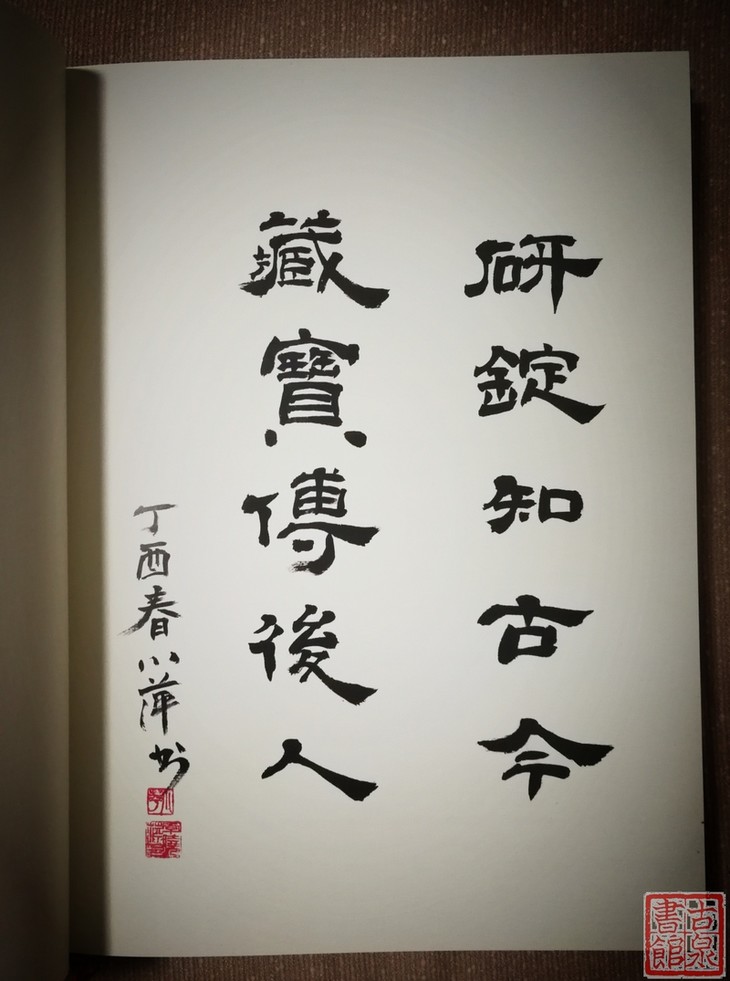 研錠知古今
藏寶傳後人
丁酉春小萍书
古泉
書館